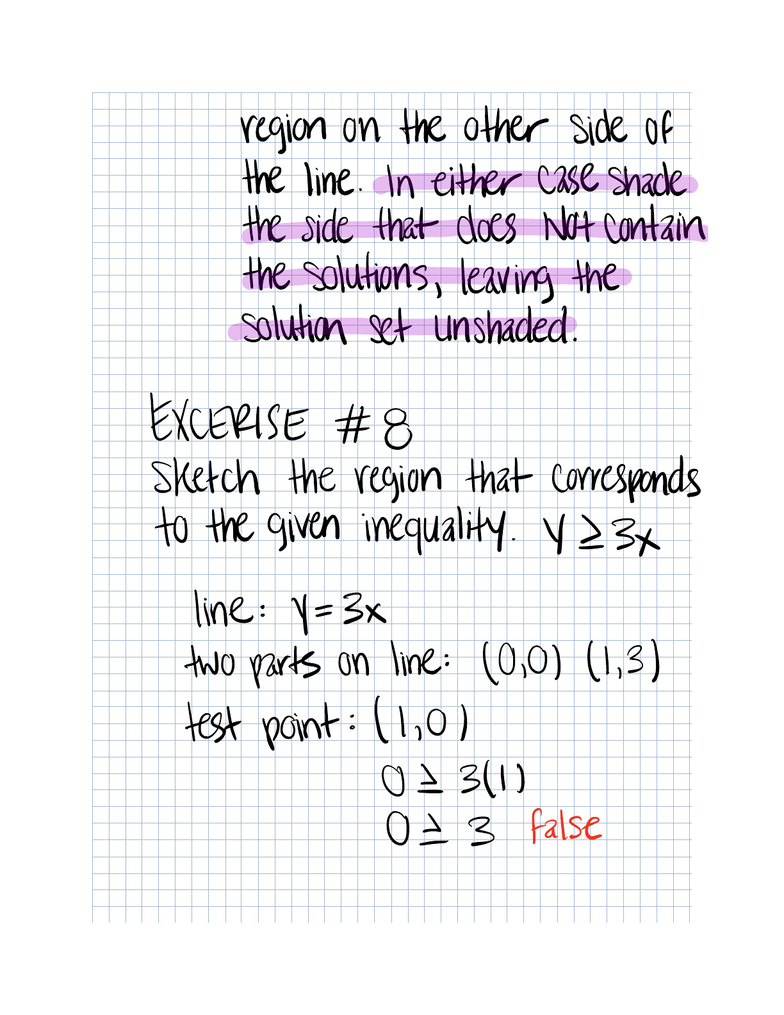 region on the other side of
the line. In either case shade
the side that does Not contain
the solutions, leaving the
solution set unshaded.
EXCERISE # 8
Sketch the region that corresponds
to the given inequality. y ≥ 3x
line: y = 3x
two parts on line: (0,0) (1,3)
test point: (1,0)
0 ≥ 3(1)
0 ≥ 3 false